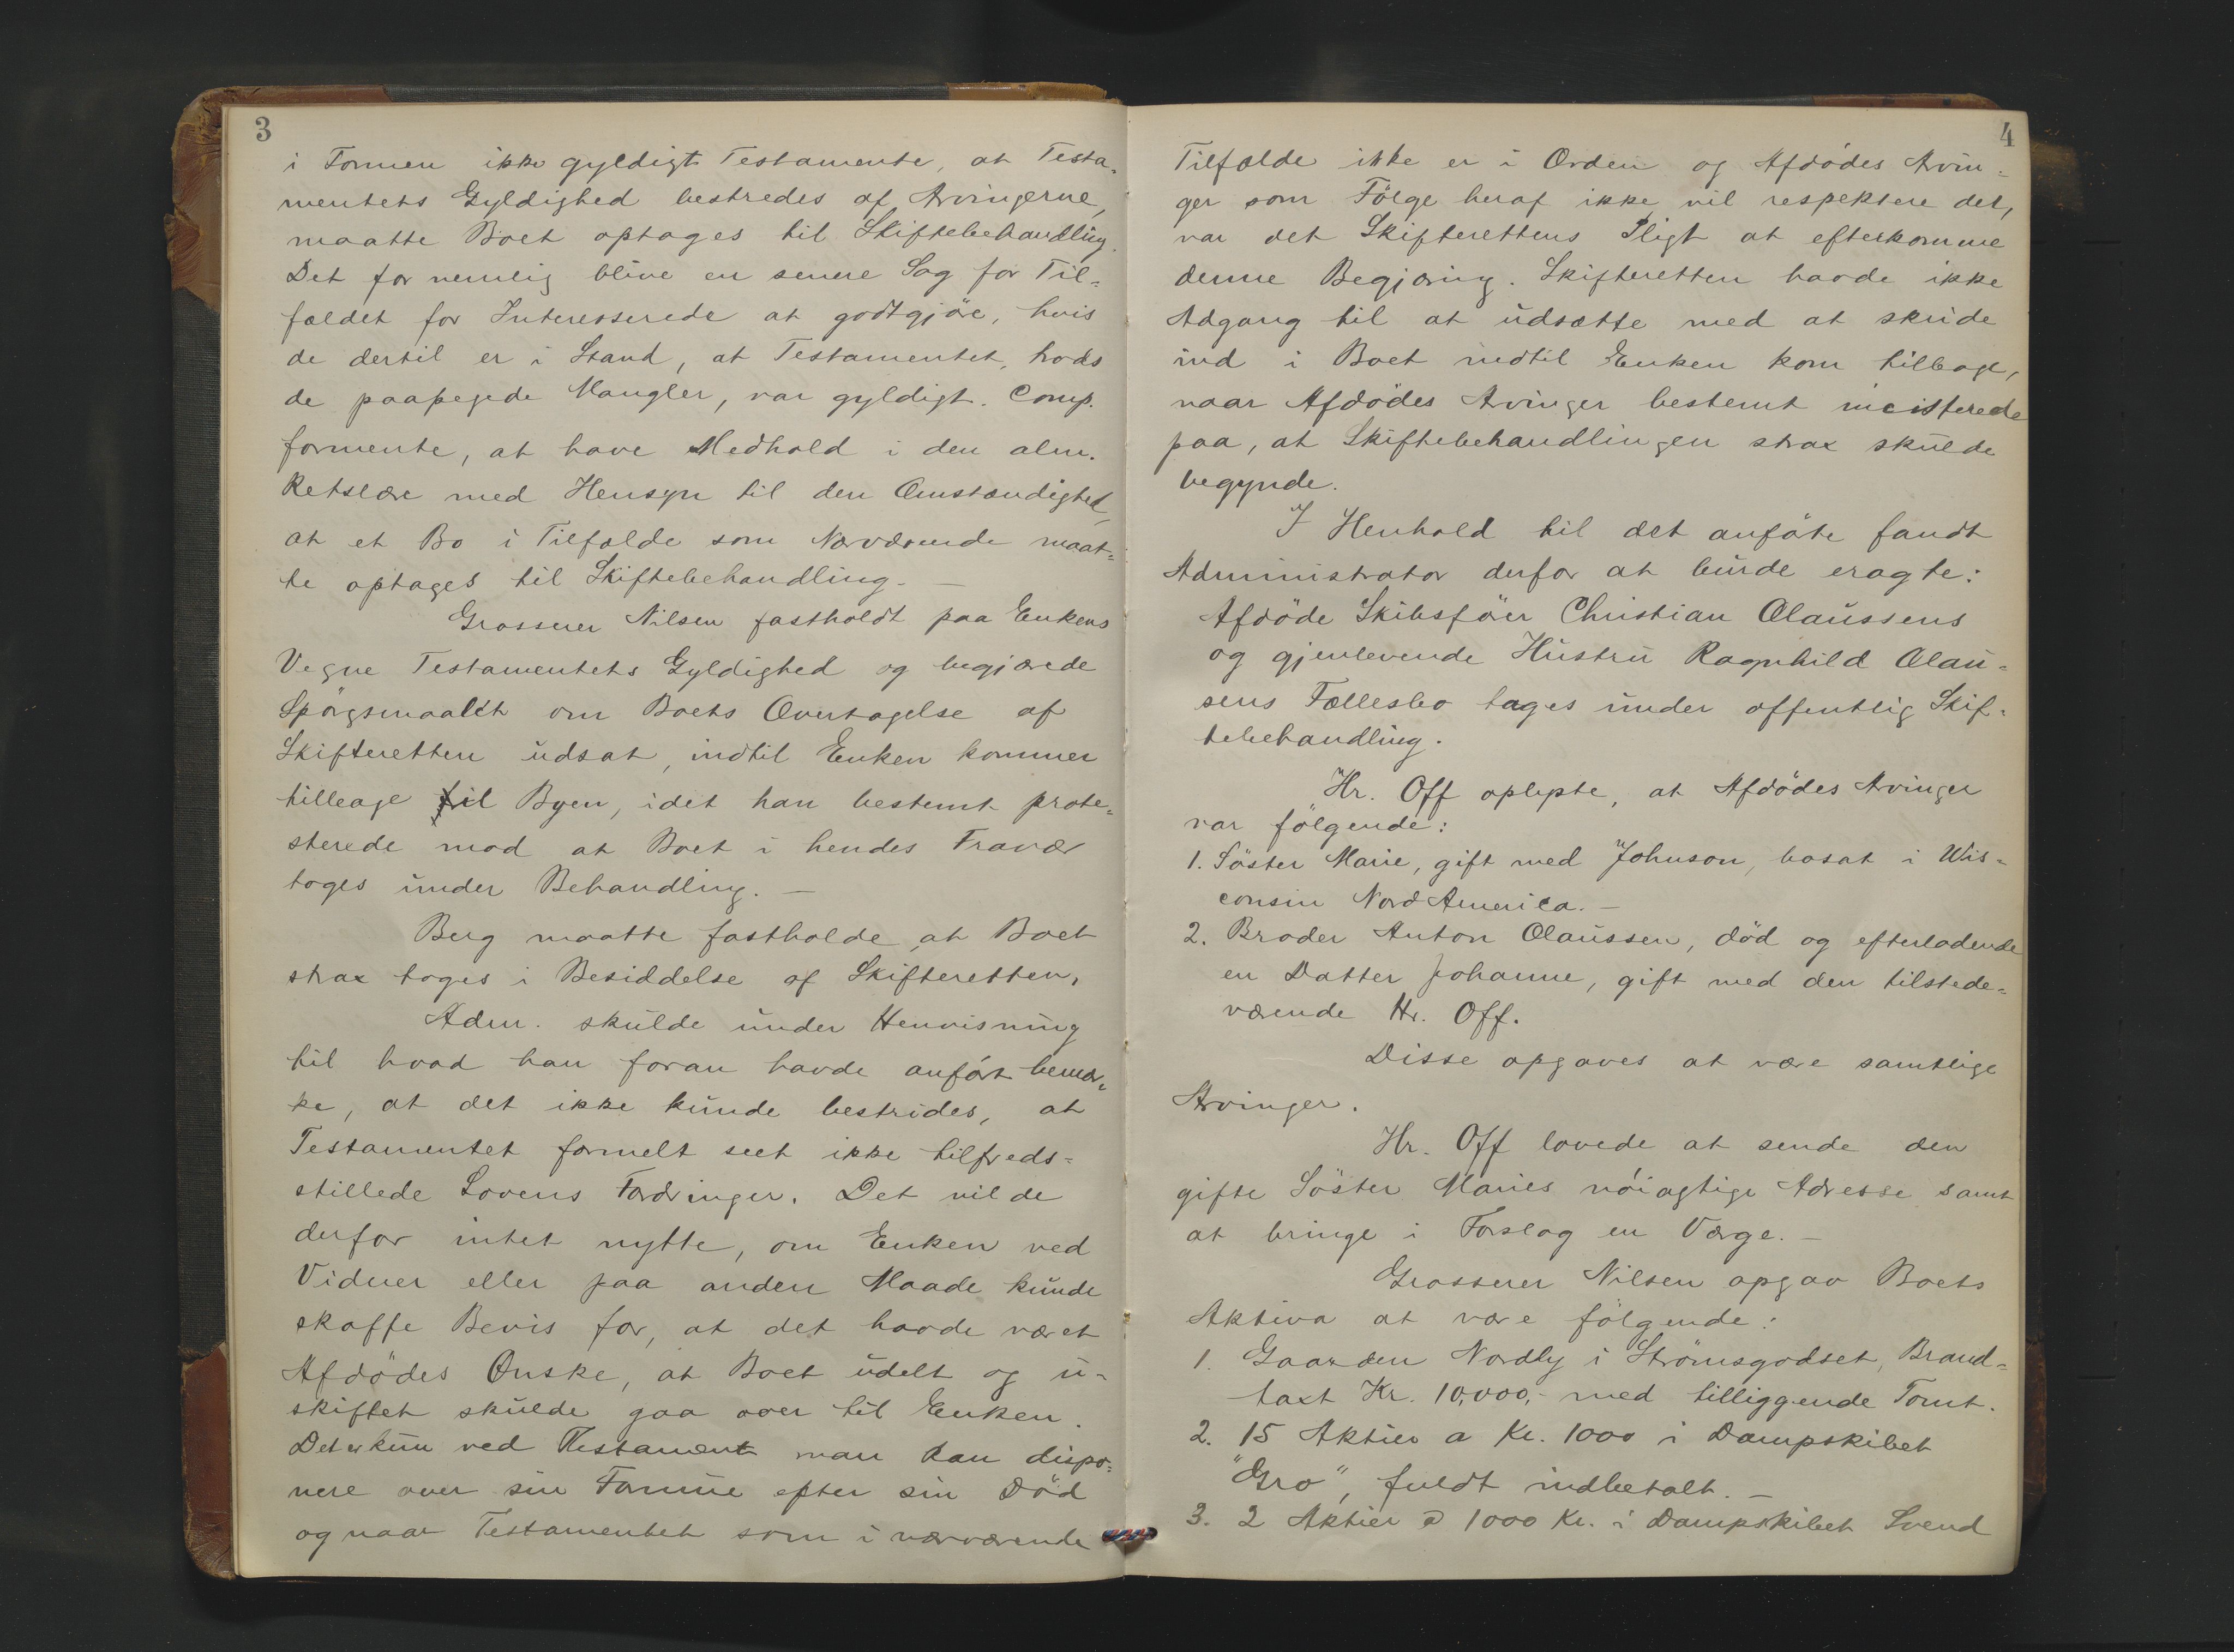 3
i Formen ikke gyldigt Testamente, at Testa-
mentets Gyldighed bestredes af Arvingerne,
maatte Boet optages til Skiftebehandling.
Det faar nemlig blive en senere Sag for Til-
fældet for Interesserede at godtgjöre, hvis
de dertil er i Stand, at Testamentet, trods
de paapegede Mangler, var gyldigt. Comp.
formente, at have Medhold i den alm.
Retslære med Hensyn til den Omstændighed,
at et Bo i Tilfælde som Nærværende maat-
te optages til Skiftebehandling. —
Grosserer Nilsen fastholdt paa Enkens
Vegne Testamentets Gyldighed og begjærede
Spörgsmaalet om Boets Overtagelse af
Skifteretten udsat, indtil Enken kommer
tilbage til Byen, idet han bestemt prote-
sterede mod at Boet i hendes Fravær
toges under Behandling. —
Berg maatte fastholde at Boet
strax toges i Besiddelse af Skifteretten,
Adm. skulde under Henvisning
til hvad han foran havde anfört bemær-
ke, at det ikke kunde bestrides, at
Testamentet formelt seet ikke tilfreds-
stillede Lovens Fordringer. Det vilde
derfor intet nytte, om Enken ved
Vidner eller paa anden Maade kunde
skaffe Bevis for, at det havde været
Afdödes Ønske, at Boet udelt og u-
skiftet skulde gaa over til Enken.
Det er kun ved Testament man kan dispo-
nere over sin Formue efter sin Död
og naar Testamentet som i nærværende
4
Tilfælde ikke er i Orden og Afdödes Arvin-
ger som Fölge heraf ikke vil respektere det,
var det Skifterettens Pligt at efterkomme
denne Begjæring. Skifteretten havde ikke
Adgang til at udsætte med at skride
ind i Boet indtil Enken kom tilbage,
naar Afdödes Arvinger bestemt insisterede
paa, at Skiftebehandlingen strax skulde
begynde.
I Henhold til det anförte fandt
Administrator derfor at burde eragte:
Afdöde Skibsförer Christian Olaussens
og gjenlevende Hustru Ragnhild Olau-
sens Fællesbo tages under offentlig Skif-
tebehandling.
Hr. Off oplyste, at Afdödes Arvinger
var fölgende:
1. Söster Marie, gift med Johnson, bosat i Wis-
consin Nord America. —
2. Broder Anton Olaussen, död og efterladende
en Datter Johanne, gift med den tilstede-
værende Hr. Off.
Disse opgaves at være samtlige
Arvinger.
Hr. Off lovede at sende den
gifte Söster Maries nöiagtige Adresse samt
at bringe i Forslag en Værge. —
Grosserer Nilsen opgav Boets
Aktiva at være fölgende:
1. Gaarden Nordby i Strömsgodset, Brand-
taxt Kr. 10,000,- med tilliggende Tomt.
2. 15 Aktier a Kr. 1000 i Dampskibet
"Gro", fuldt indbetalt. —
3. 2 Aktier a 1000 Kr. i Dampskibet Svend